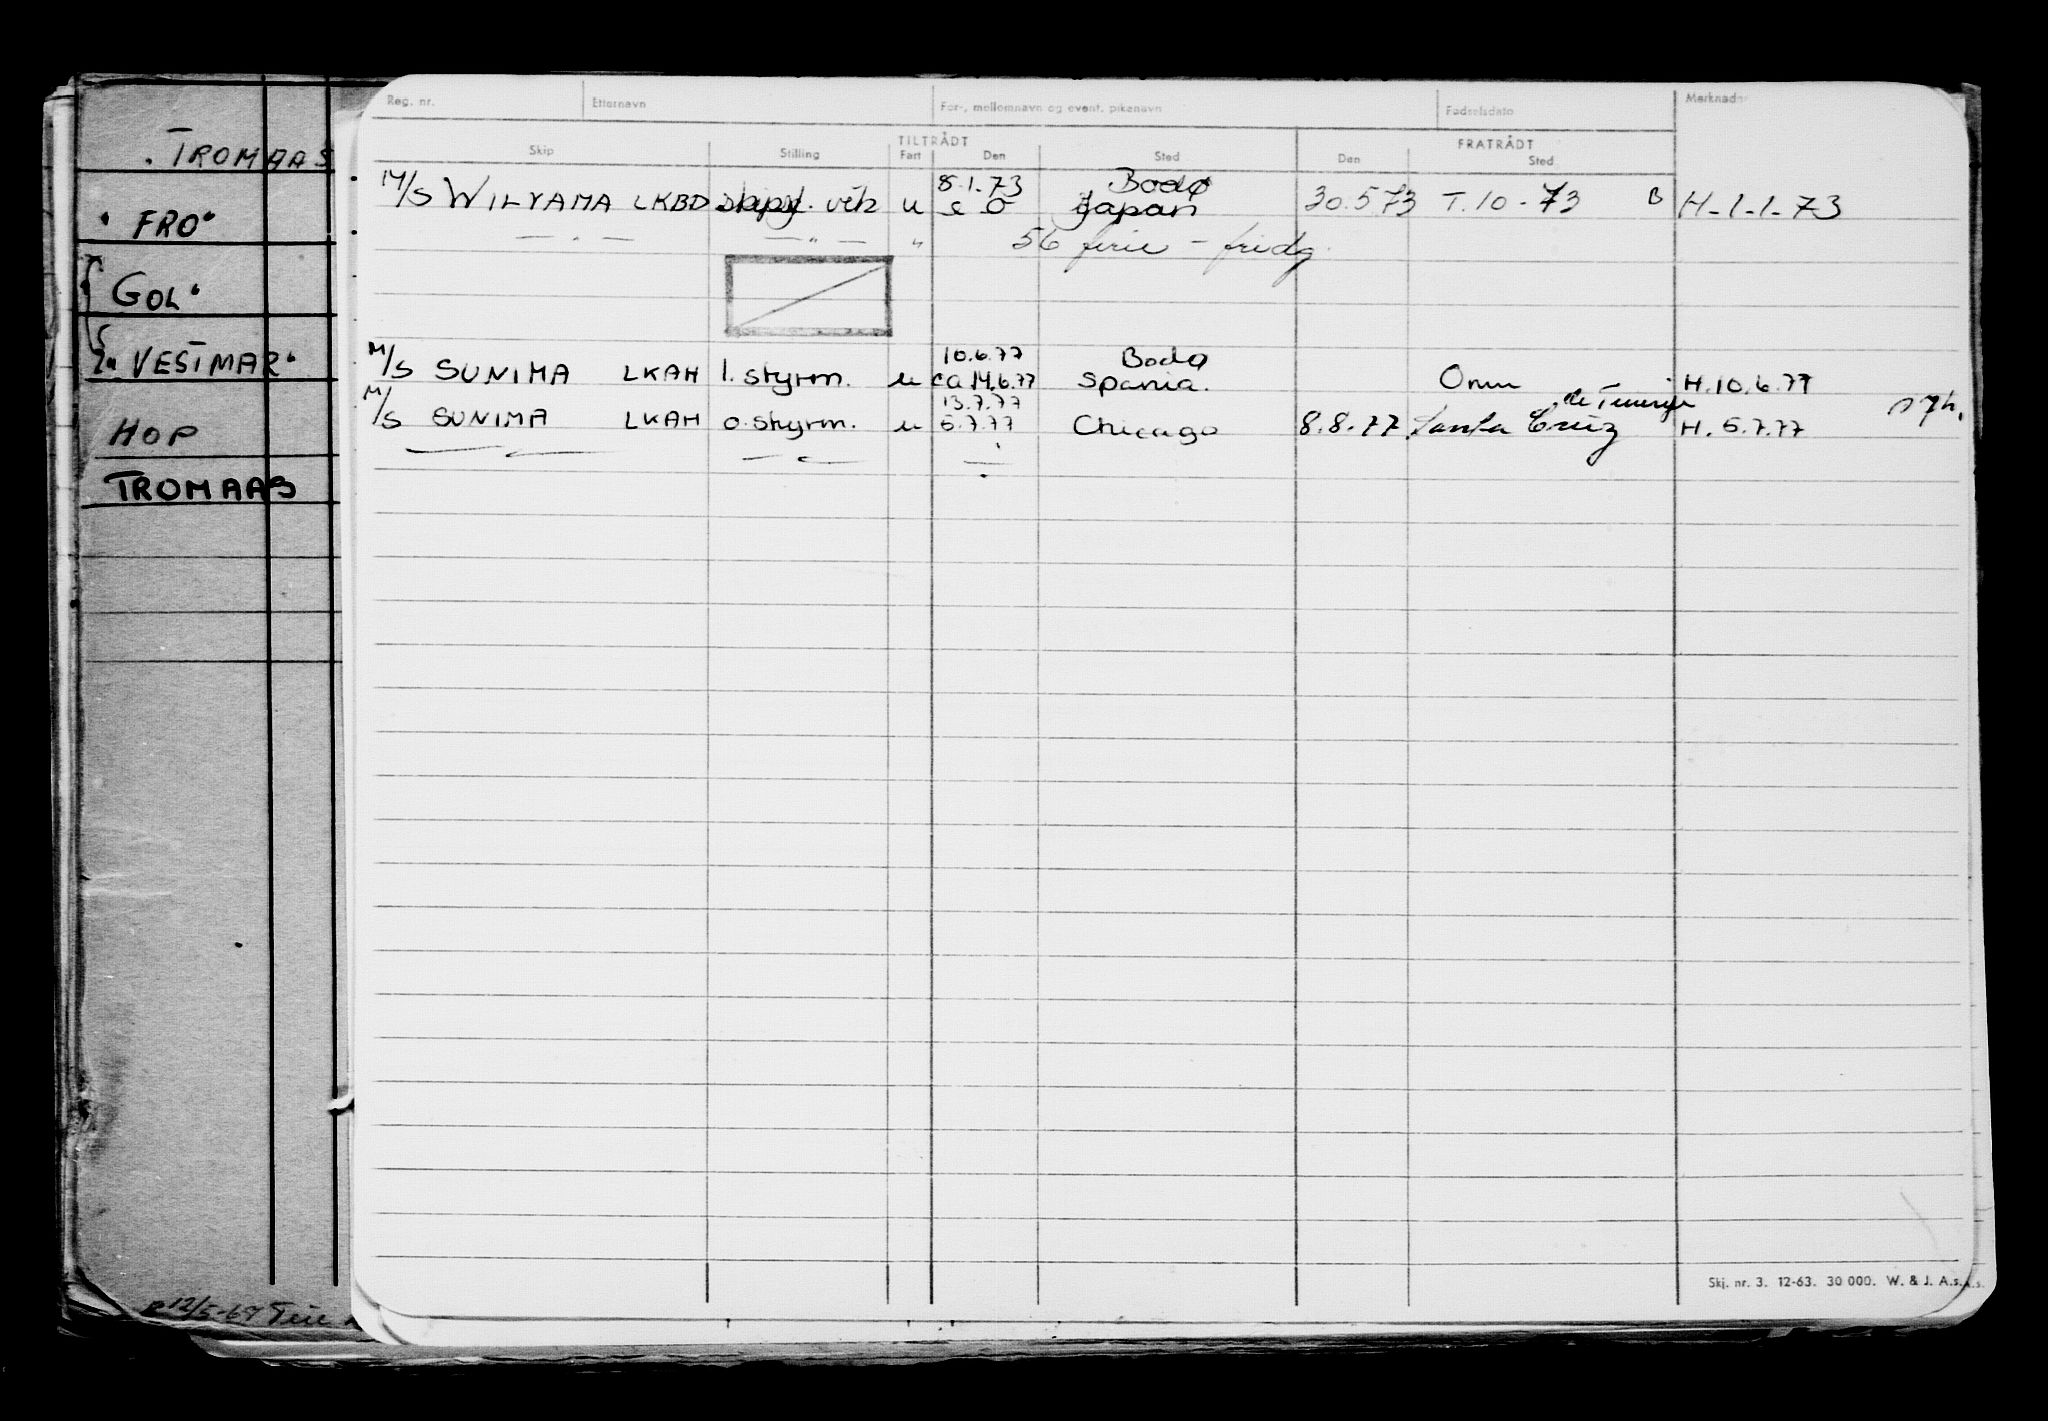 . TROMAAS
" FRO"
GOL"
" VESTMAR"
HOP
TROMAAS
Reg. nr. Etternavn For-, mellomnavn og event. pikenavn Fødselsdato Merknader
TILTRÅDT FRATRÅDT
Skip Stilling Fart Den Sted Den Sted
8.1.73 Bodø
M/S WILYAMA LKBD vik u Japan 30.5 73 T.10-73 B H-1-1-73
— " — — " — " 56 ferie - fridg.
10.6.77 Bodø
M/S SUNIMA LKAH 1. styrm. u ca 14.6.77 Spania. Omm H.10.6.77
13.7.77 de Tenerife
M/S SUNIMA LKAH o. styrm. u 5.7.77 Chicago 8.8.77 Santa Cruz H. 5.7.77
12/5-69
Skj. nr. 3. 12-63. 30 000. W. & J. A.s.